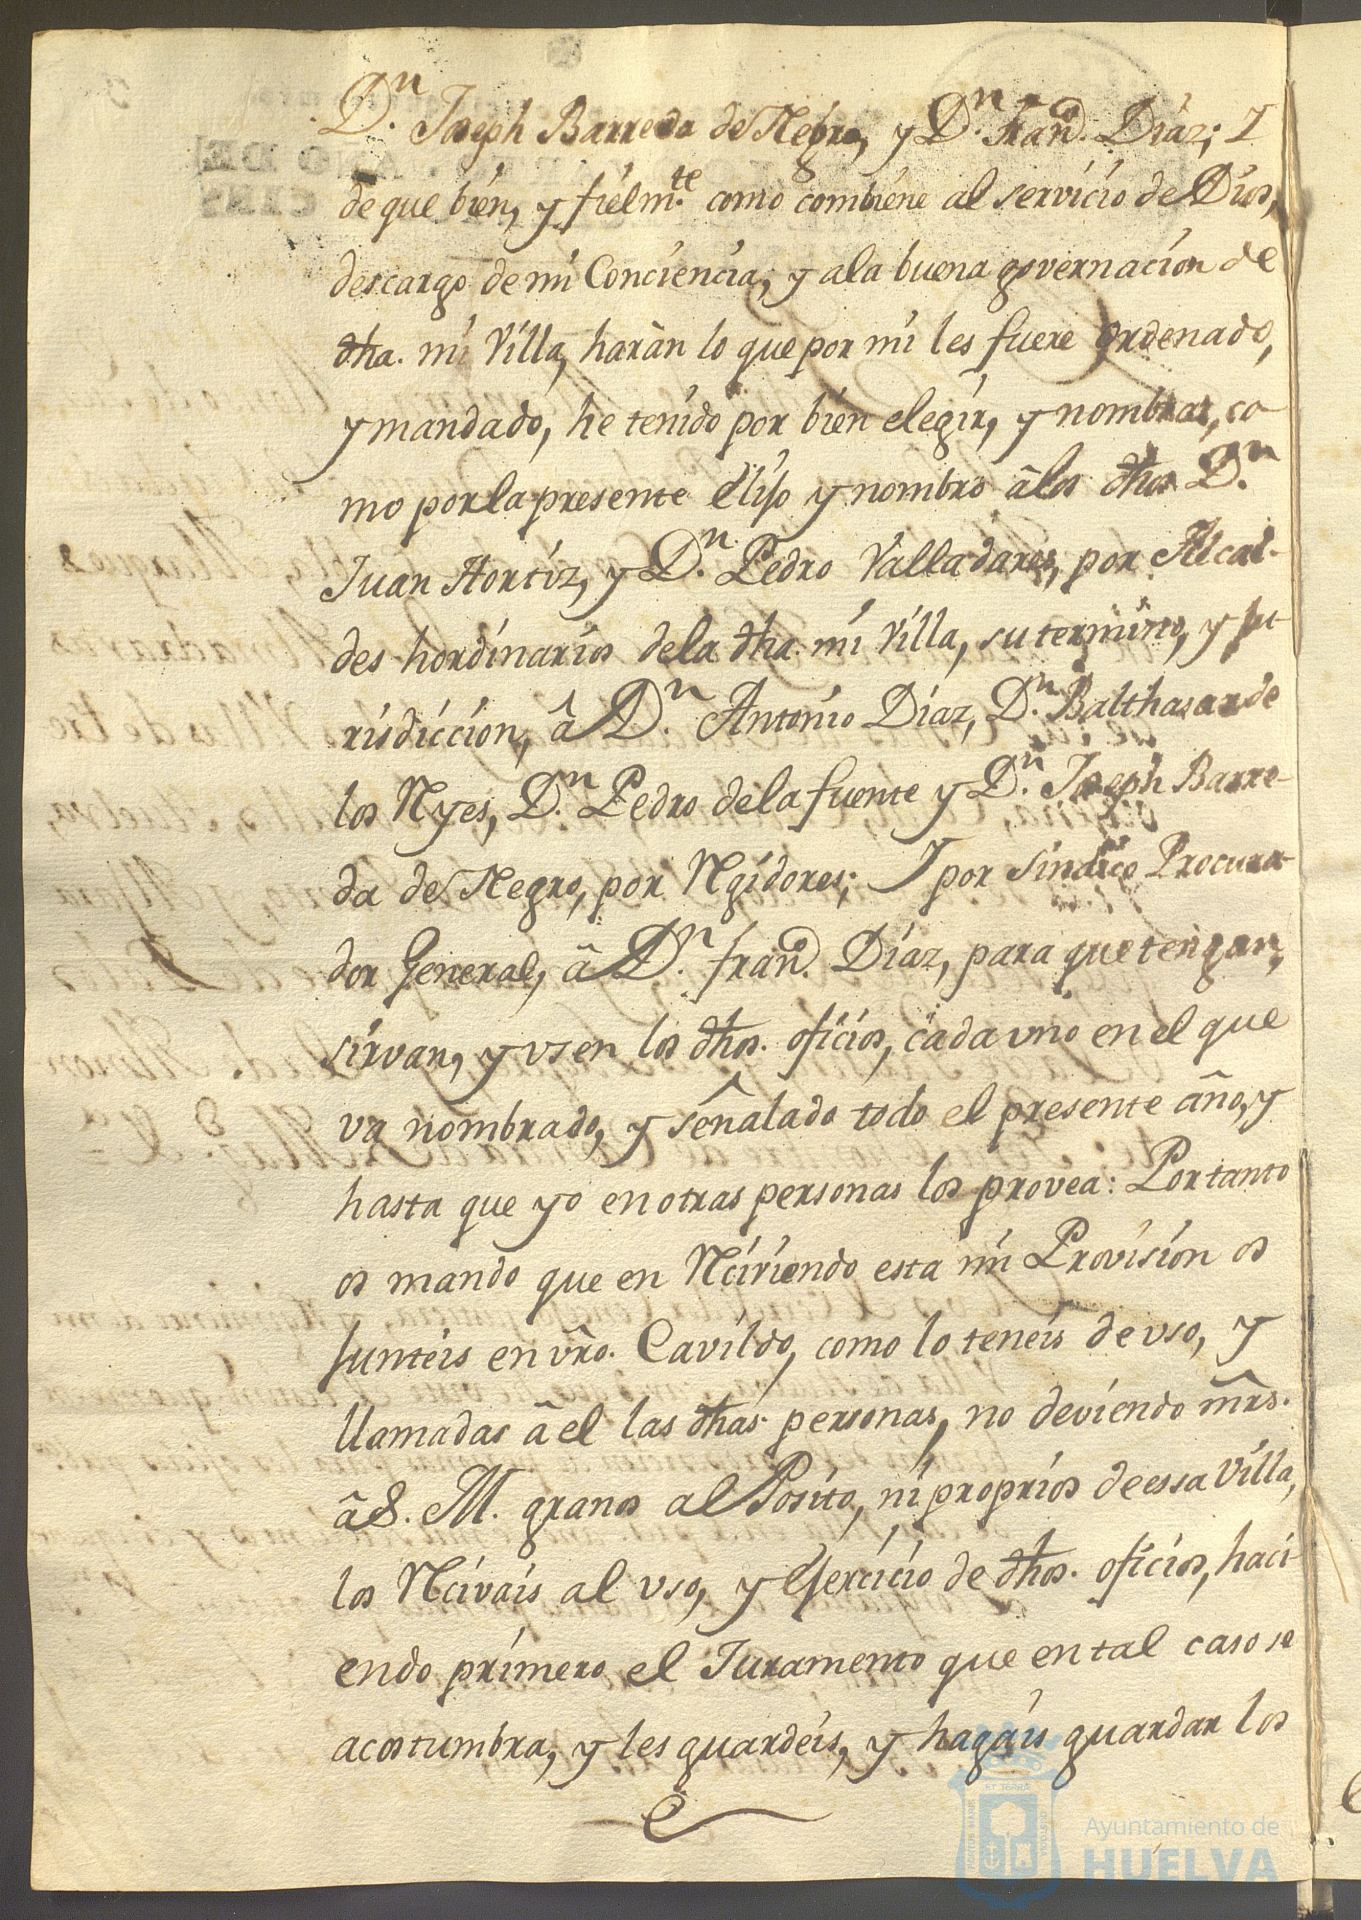 Dn. Joseph Barreda de Negro, y Dn. Franco. Díaz; I
de que bien, y fielmte. como combiene al servicio de Dios,
descargo de mi Conciencia, y ala buena governacion de
dha. mi Villa, haràn lo que por mi les fuere ordenado,
y mandado, he tenido por bien elegir, y nombrar, co
mo por la presente elijo y nombro â los dhos Dn.
Juan Hortiz, y Dn. Pedro Valladares, por Alcal-
des hordinarios dela dha. mi Villa, su termino, y ju
risdiccion, â Dn. Antonio Diaz, Dn. Balthasar de
los Ryes, Dn. Pedro de la fuente y Dn. Joseph Barre-
da de Negro, por Rgidores; I por Sindico Procura-
dor General, â Dn. Franco. Díaz, para que tengan,
sirvan, y vsen los dhos. oficios, cada vno en el que
va nombrado, y señalado todo el presente año, y
hasta que yo en otras personas los provea: Por tanto
os mando que en Rciviendo esta mi Provision os
Junteis en vro. Cavildo, como lo teneis de vso, y
llamadas â el las dhas. personas, no deviendo mrs.
â S. M. granos al Posito, ni proprios de essa Villa,
los Rcivais al vso, y ejercicio de dhos. oficios, haci
endo primero el Juramento que en tal caso se
acostumbra, y les guardeis, y hagais guardar los
Ayuntamiento de
HUELVA